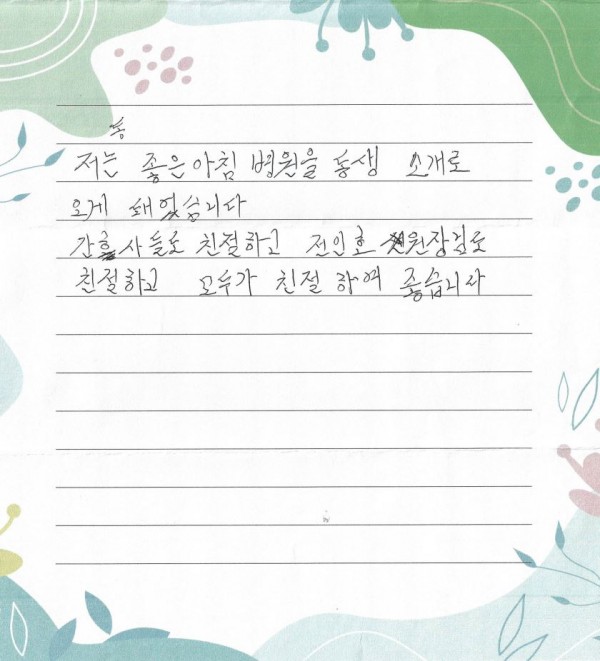 홍
저는 좋은아침 병원을 동생 소개로
오게 돼었습니다
간호사들도 친절하고 전인호 원장님도
친절하고 모두가 친절 하여 좋습니다